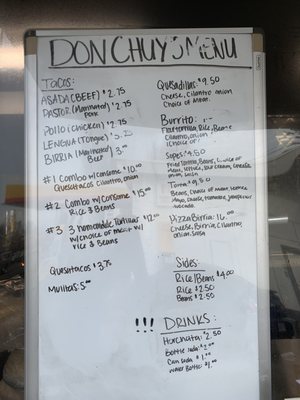 DON CHUY'S MENU
Tacos:
ASADA (BEEF) $2.75
PASTOR (Marinated) $2.75
Pork
Pollo (chicken) $2.75
LENGUA (Tongue)
BIRRIA (Marinated) 3.00
Beef
#1 Combo w/consome $10.00
Quesatacos Cilantro, onion
#2 Combo w/consome $15.00
Rice & Beans
#3 3 homemade Tortillas $12.00
w/choice of meat w/
rice & Beans
Quesatacos $3.75
Mulitas: 5.00
Quesadillas: $9.50
Cheese, Cilantro onion
Choice of Meat.
Burrito:
Flour tortilla, Rice, Beans
Cilantro, onion
Choice of
Sopes: $4.50
Beans, Choice of
Meat, lettuce, sour cream, Cheese
onion, Salsa
Torta: $9.50
Beans, Choice of Meat, lettuce
Mayo, Cheese, tomatoe, Jalapeno
avocado.
Pizza Birria: 16.00
Cheese, Birria, Cilantro,
onion, Salsa
Sides:
Rice/Beans $4.00
Rice $2.50
Beans $2.50
!!! DRINKS:
Horchata: $2.50
Bottle soda: $2.00
Can soda $1.00
Water Bottle: $1.00